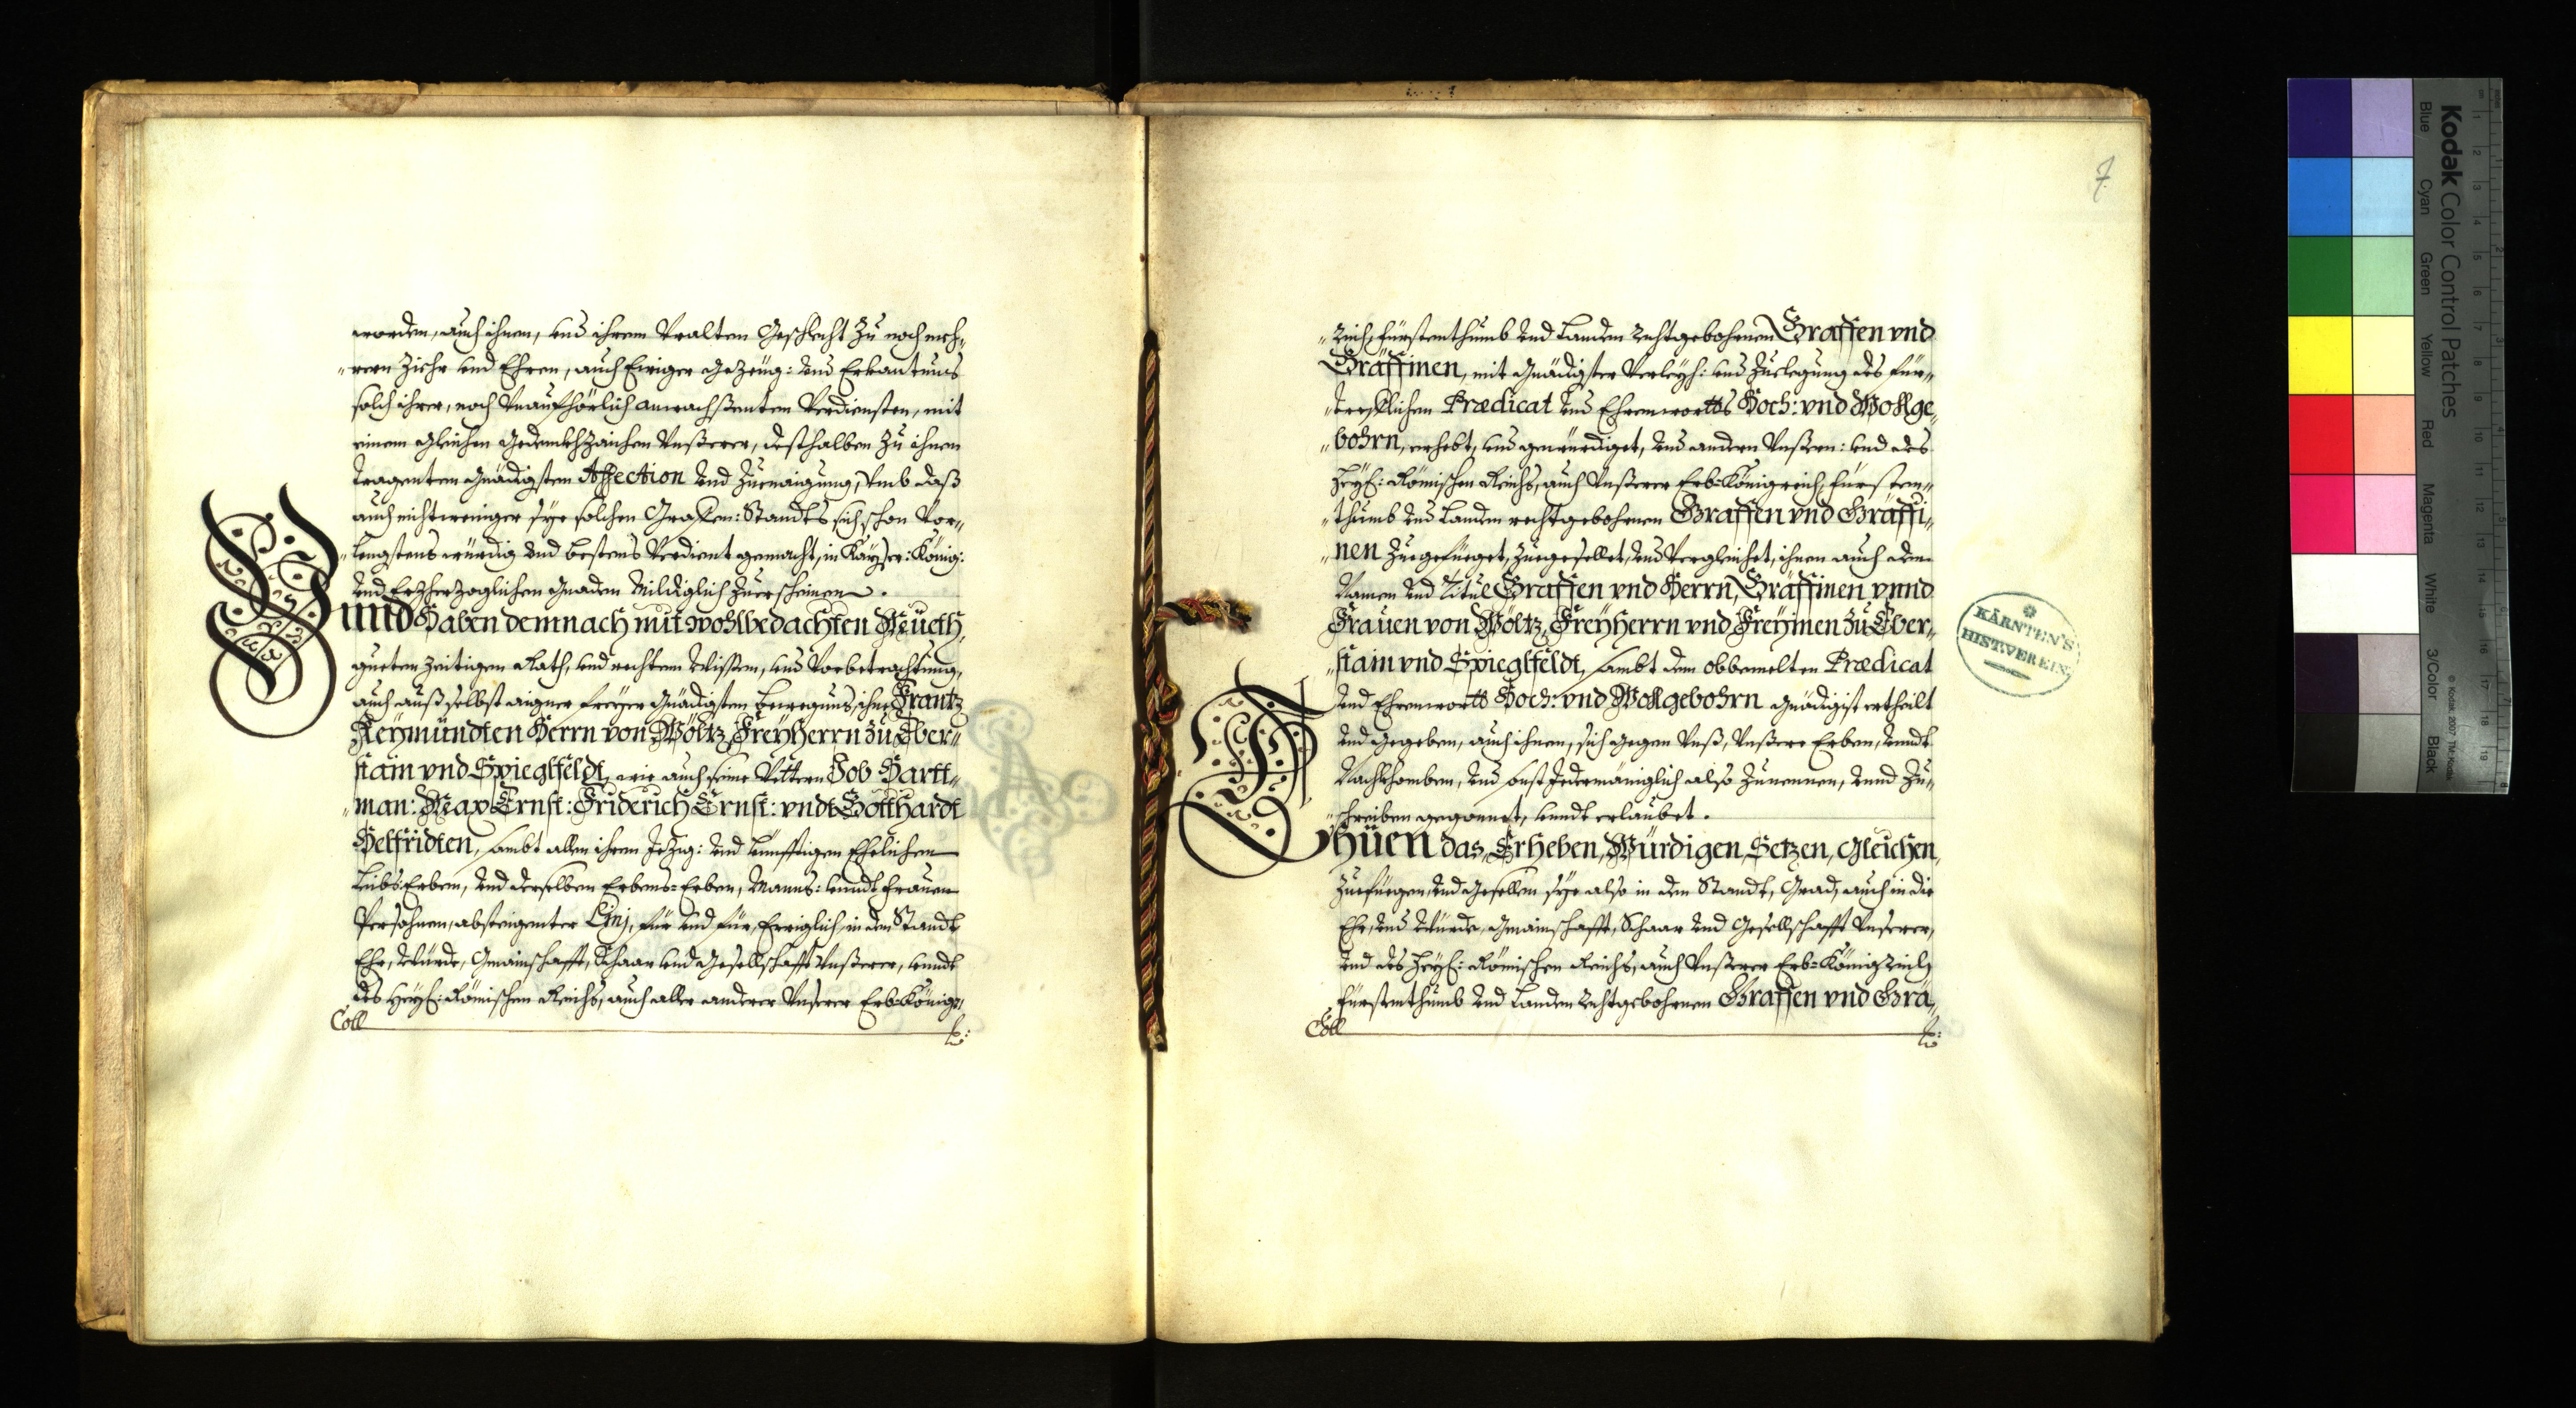 worden, auch ihnen, und ihrem Uralten Geschlecht zu noch meh„
„rern Ziehr und Ehren, auch Ewiger gezeüg: und Erkantnus
solch ihrer, noch Unaufhörlich anwachßenten Verdiensten, mit
einem gleichen Gedenckhzaichen Unßerer, desthalben zu ihnen
tragenten gnädigsten Affection und Zuenaigung, Umb daß
auch nicht weniger sye solchen Graffen: Standts sich schon Vor„
„lengstens würdig und bestens Verdient gemacht, in Kayßer: König:
und Ertzherzoglichen Gnaden Mildiglich zuerscheinen.
Uund Haben demnach mit wohlbedachten Müeth,
gueten zeitigen Rath, und rechtem Wissen, und Vorbetrachtung,
auch auß selbst aigner freyer gnädigsten bewegnus, ihne Frantz
Reymundten Herrn von Wöltz, Freyherrn zu Eber„
stain vnd Spieglfeldt, wie auch seine Vettern Job Hartt„
„man: Max Ernst: Friderich Ernst: vndt Gotthardt
Helfridten, sambt allen ihren Jezig: und künfftigen Ehelichen
Leibs Erben, und derselben Erbens=Erben, Manns: unndt Frauen
Persohnen, absteigenter Linj, für und für, Ewiglich, in den Standt
Ehr, Würde, Gmainschafft, Schaar und Gesellschafft Unßerer, unndt
des Heyl: Römischen Reichs, auch aller anderer Unserer Erb=Königr„
Coll
„reich, Fürstenthumb und Landen rechtgebohrnen Graffen vnd
Gräffinen, mit gnädigster Verleyh: und Zuelegung des für„
„trefflichen Prædicat und Ehrenworths Hoch: vnd Wohlge„
„bohrn, erhebt, und gewürdiget, und andern Unßern: und des
Heyl: Römischen Reichs, auch Unßerer Erb=Königreich, Fürsten„
„thumb und Landen rechtgebohrnen Graffen vnd Gräffi„
„nen zuegefüeget, zuegesellet, und Vergleichet, ihnen auch den
Namen und Titul Graffen vnd Herrn, Gräffinen vnnd
Frauen von Wöltz, Freyherrn vnd Freyinen zu Eber„
„stain vnd Spieglfeldt, sambt dem obbemelten Prædicat
und Ehrenworth Hoch: vnd Wohlgebohrn gnädigist ertheilt
und gegeben, auch ihnen, sich gegen Unß, Unßere Erben, unndt
Nachkhomben, und sonst Jedermäniglich also zunennen, unnd zu„
„schreiben gegonnet, unndt erlaubet.
Thüen das, Erheben, Würdigen, Setzen, gleichen,
Zuefüegen, und Gesellen sye also in den Standt, Grad, auch in die
Ehr, und Würde, Gmainschafft, Schaar und Gesellschafft Unserer,
und des Heyl: Römischen Reichs, auch Unßerer Erb=Königreich
Fürstenthumb und Landen rechtgebohrnen Graffen vnd Grä„
Coll
7
KÄRNTEN'S HIST. VEREIN
Kodak Color Control Patches
Blue Cyan Green Yellow Red Magenta White 3/Color Black
© Kodak, 2007 TM: Kodak